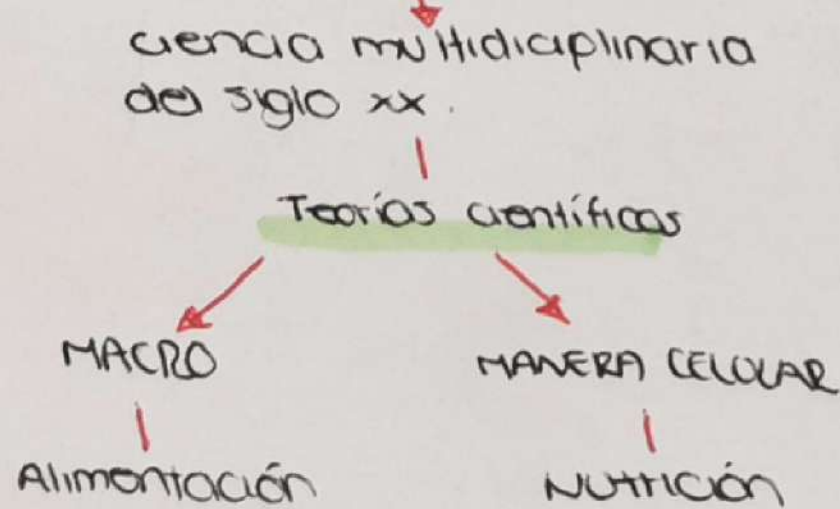 ciencia multidiciplinaria
del siglo xx.
Teorías científicas
MACRO
MANERA CELULAR
Alimentación
Nutrición